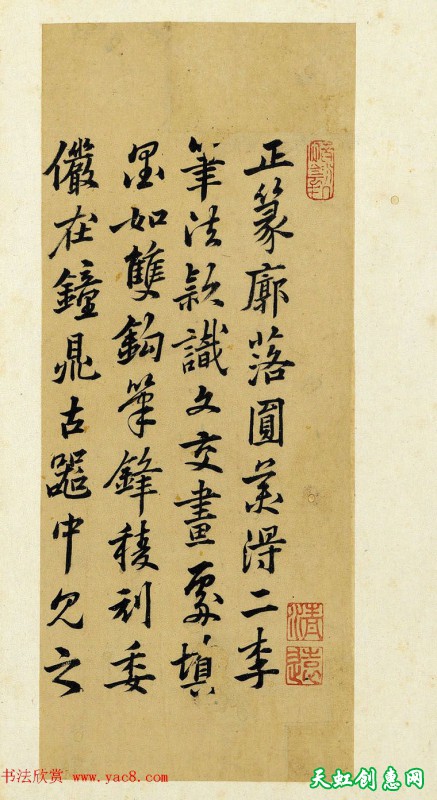 正篆廓落圓美得二李
筆法款識文交畫處填
墨如雙鈎筆鋒稜利委
儼在鐘鼎古器中見之
清遠
书法欣赏 www.yac8.com
天虹创惠网